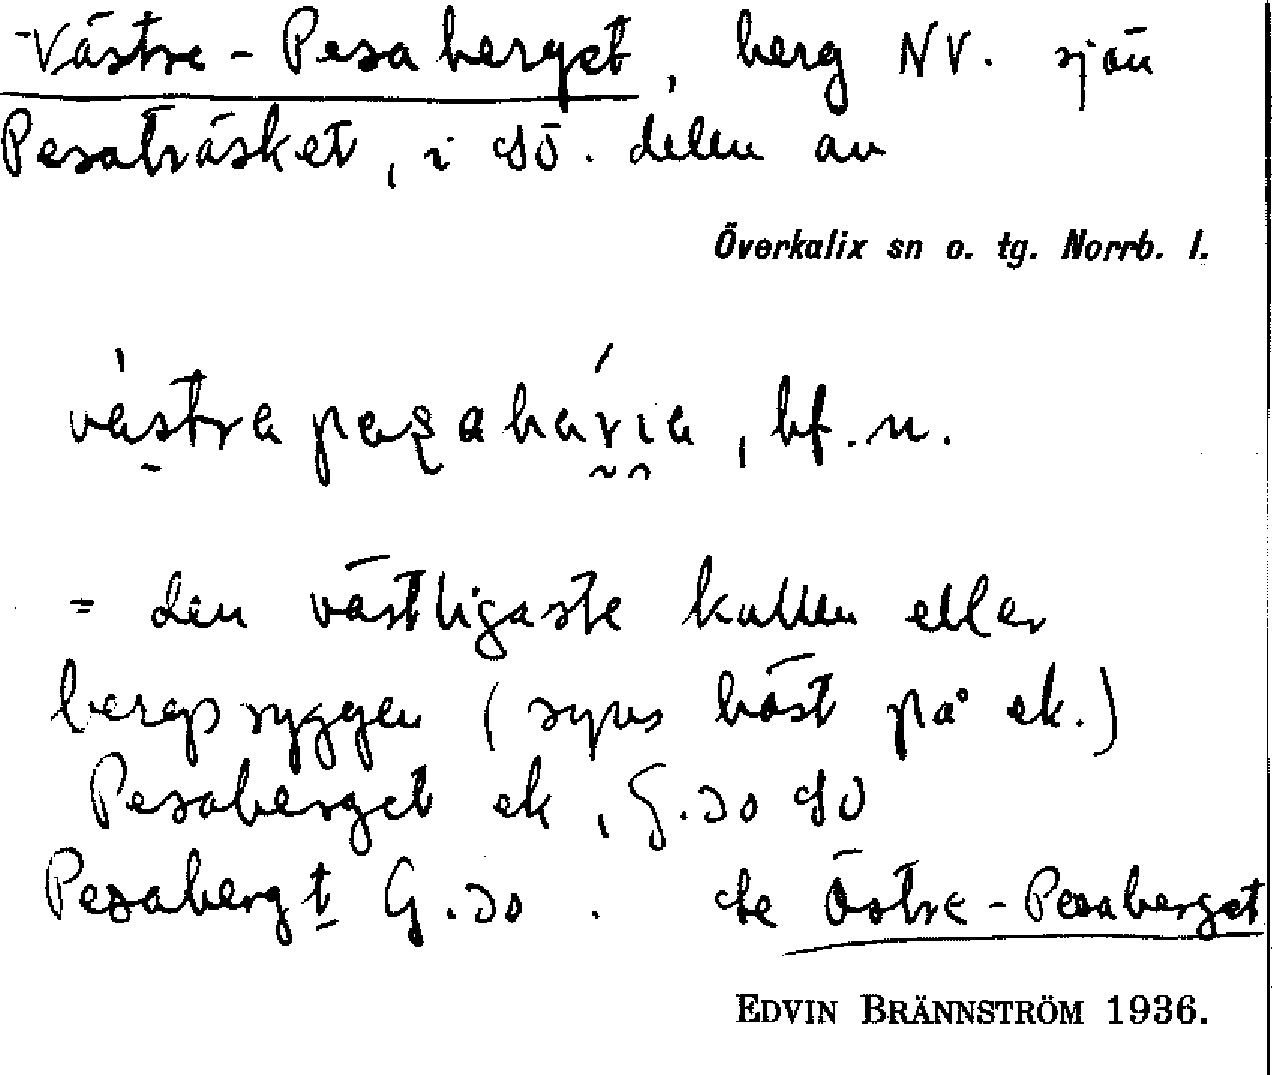 Västre-Pesaberget, berg NV. sjön
Pesaträsket, i SÖ. delen av
Överkalix sn o. tg. Norrb. l.
västra pesabária, bf. n.
= den västligaste kullen eller
bergsryggen (syns bäst på ek.)
Pesaberget ek, G.30 SV
Pesabergt G.30. Se Östre-Pesaberget
EDVIN BRÄNNSTRÖM 1936.